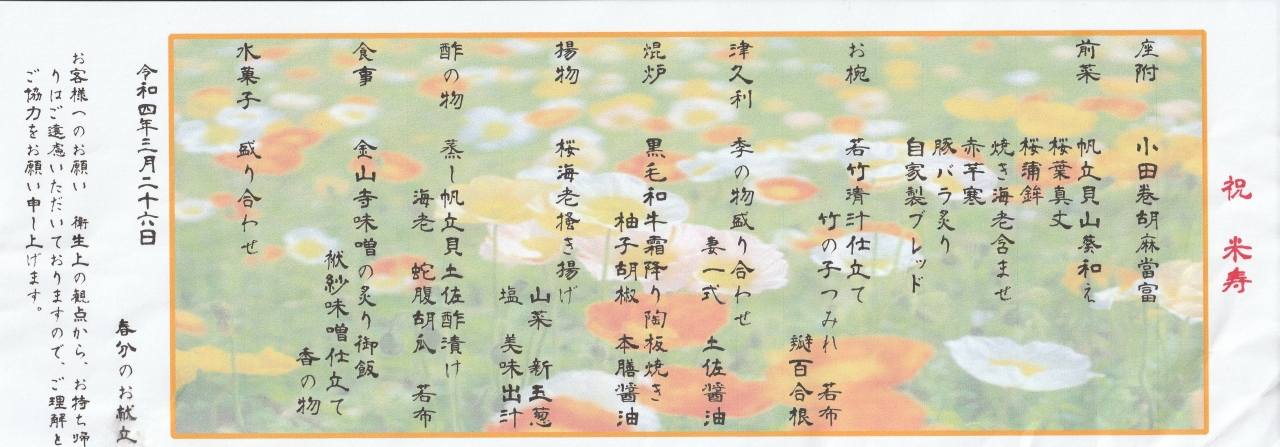 祝 米寿
座附 小田巻胡麻當富
前菜 帆立貝山葵和え
桜葉真丈
桜蒲鉾
焼き海老含ませ
赤芋寒
豚バラ炙り
自家製ブレッド
お椀 若竹清汁仕立て
竹の子つみれ 若布
瓣百合根
津久利 季の物盛り合わせ
妻一式 土佐醤油
焜炉 黒毛和牛霜降り陶板焼き
柚子胡椒 本膳醤油
揚物 桜海老掻き揚げ
山菜 新玉葱
塩 美味出汁
酢の物 蒸し帆立貝土佐酢漬け
海老 蛇腹胡瓜 若布
食事 金山寺味噌の炙り御飯
袱紗味噌仕立て
香の物
水菓子 盛り合わせ
令和四年三月二十六日
春分のお献立
お客様へのお願い 衛生上の観点から、お持ち帰
りはご遠慮いただいておりますので、ご理解と
ご協力をお願い申し上げます。